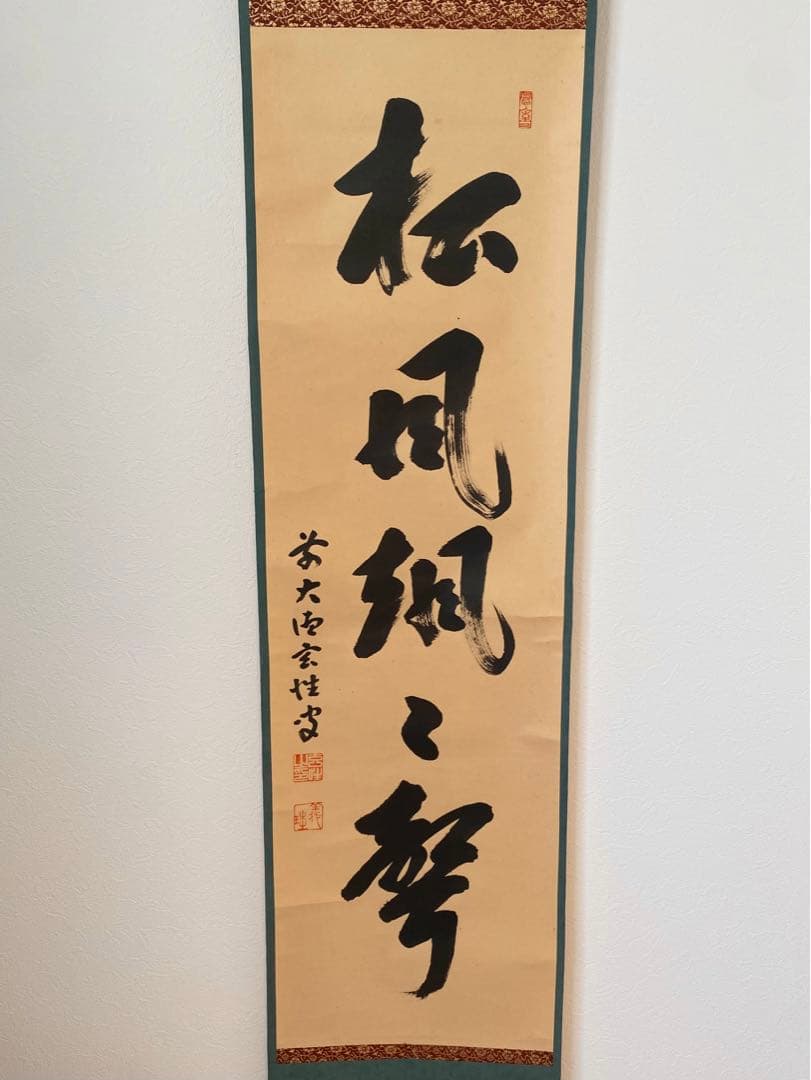 松風颯々聲
前大徳玄性叟